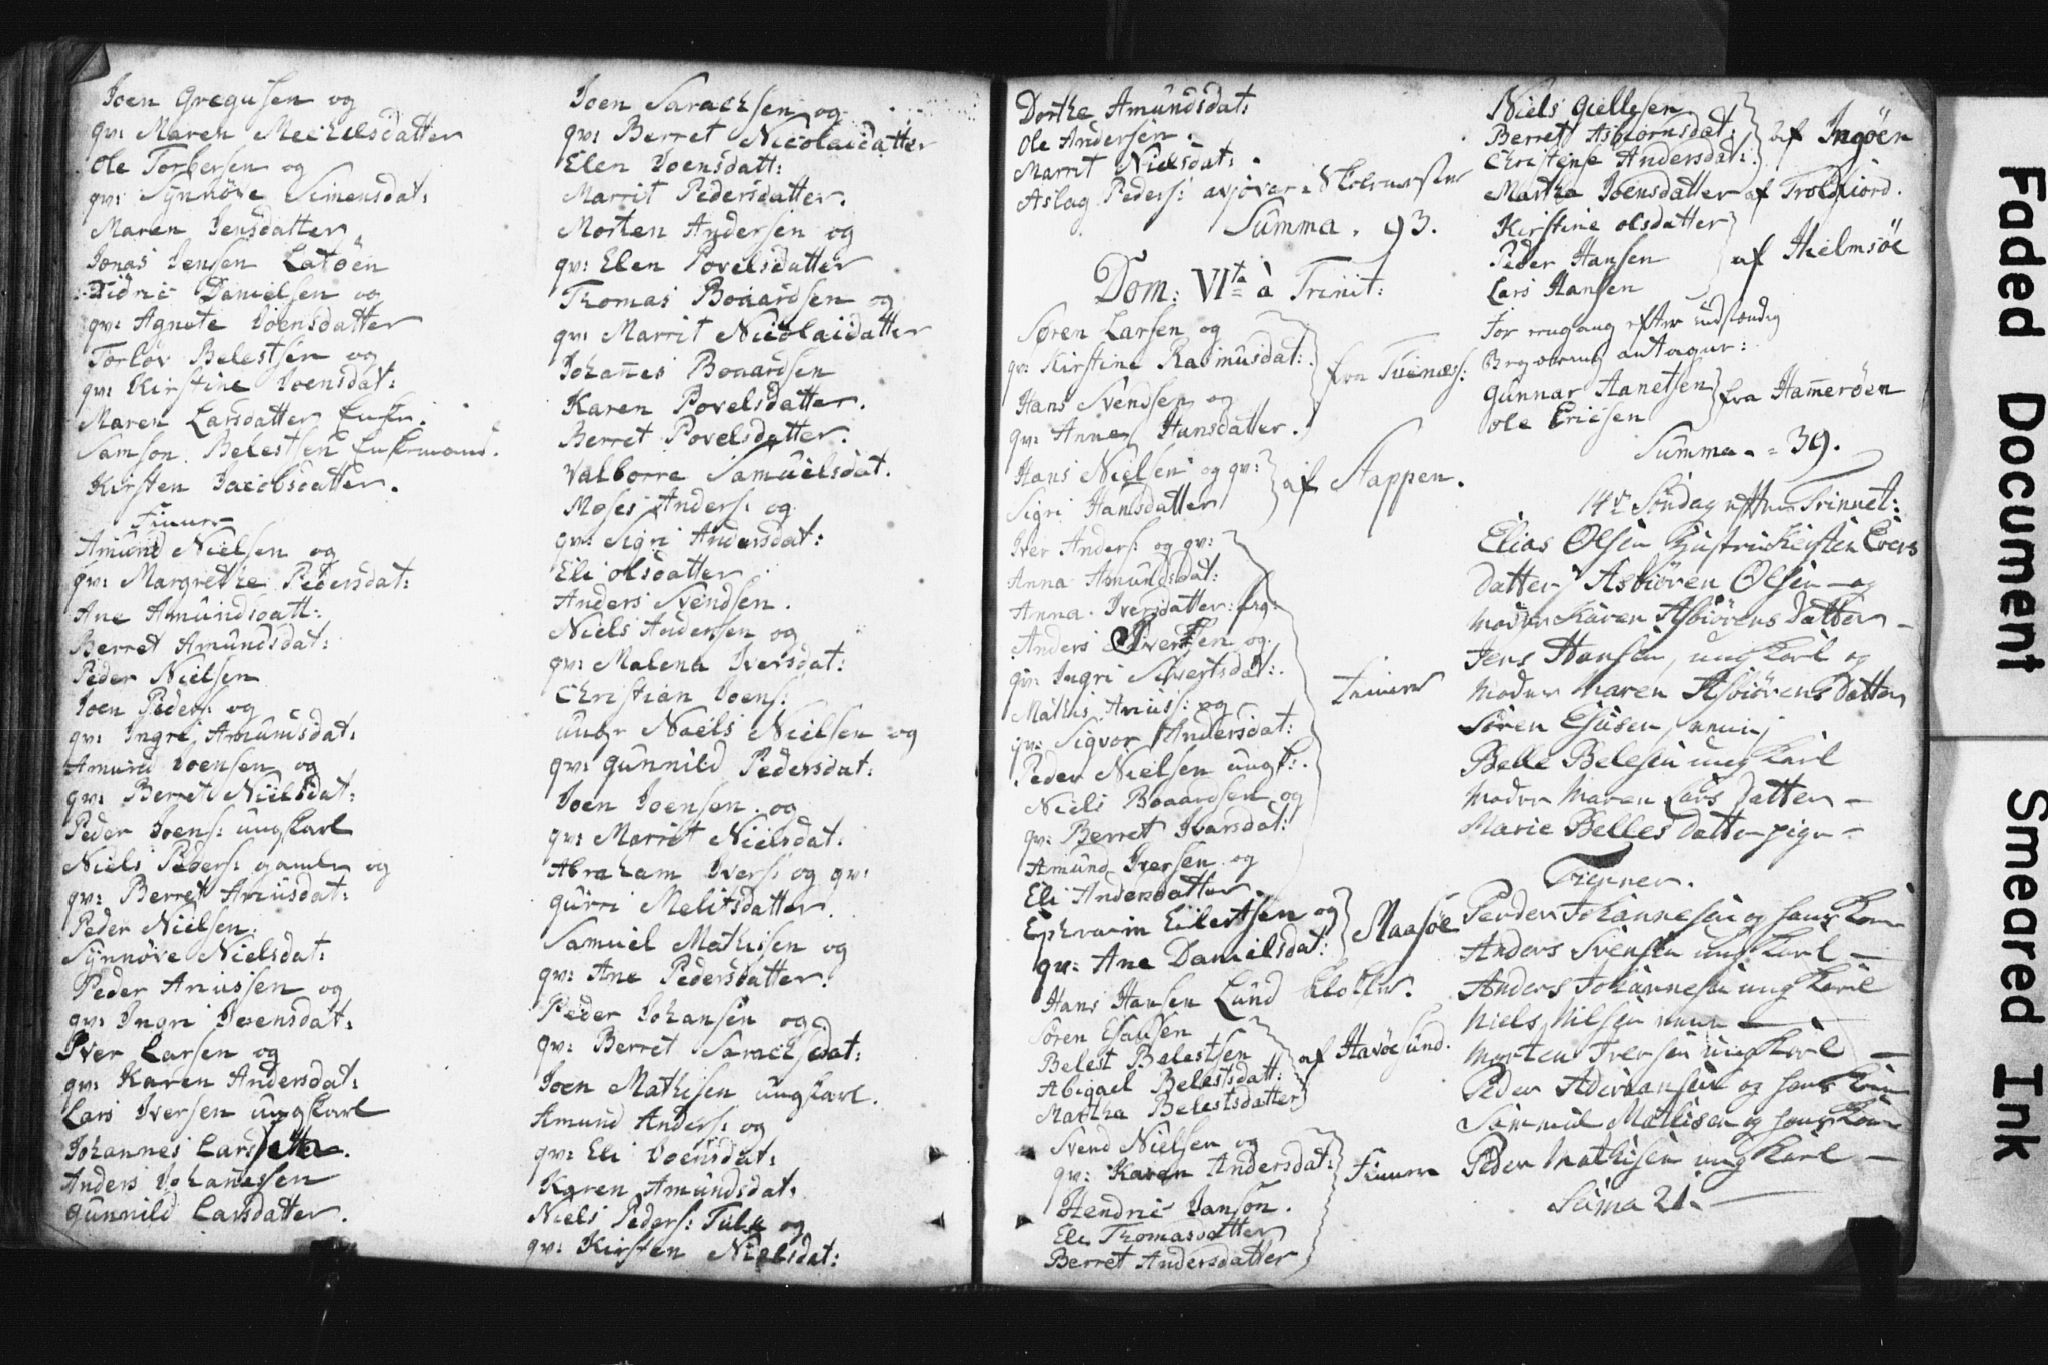 Joen Gregusen og
qv: Maren Mechelsdatter
Ole Torbersen og
qv: Synnöve Simensdat:
Maren Jensdatter
Jonas Jensen Latöen
Didric Danielsen og
qv: Agnete Joensdatter
Torlov Belestsen og
qv: Kirstine Joensdat:
Maren Larsdatter Enke.
Samson Belestsen Enkemand.
Kirsten Jacobsdatter.
Finner
Amund Nielsen og
qv: Margrethe Pedersdat:
Ane Amundsdatt:
Berret Amundsdat:
Peder Nielsen
Joen Peders: og
qv: Ingri Amundsdat:
Amund Joensen og
qv: Berret Nielsdat:
Peder Joens: ungkarl
Niels Peders: gamle og
qv: Berret Ariusdat:
Peder Nielsen
Synnöve Nielsdat:
Peder Ariussen og
qv: Ingri Joensdat:
Iver Larsen og
qv: Karen Andersdat:
Lars Iversen ungkarl
Johannes Lars
Anders Johannessen
Gunnild Larsdatter.
Joen Sarachsen og
qv: Berret Nicolaidatter
Elen Joensdatt:
Marrit Pedersdatter.
Morten Andersen og
qv: Elen Povelsdatter
Thomas Boaardsen og
qv: Marrit Nicolaidatter
Johañes Boaardsen
Karen Povelsdatter.
Berret Povelsdatter.
Valborre Samuelsdat.
Moses Anders: og
qv: Sigri Andersdat:
Eli olsdatter
Anders Svendsen.
Niels Andersen og
qv: Malena Iversdat:
Christian Joens:
unge Noels Nielsen og
qv: Gunnild Pedersdat:
Joen Joensen og
qv: Marrit Nielsdat:
Abraham Ivers: og qv:
Gurri Melitsdatter.
Samuel Mathisen og
qv: Ane Pedersdatter.
Peder Johansen og
qv: Berret Sarachsdat:
Joen Mathisen ungkarl.
Amund Anders: og
qv: Eli Joensdat:
Karen Amundsdat:
Niels Peders: Tula og
qv: Kirsten Nielsdat:
Dorthe Amundsdat:
Ole Andersen.
Marrit Nielsdat:
Aslag Peders:
Summa. 93.
Dom: VIta à Trinit:
Søren Larsen og
qv: Kirstine Rasmusdat:
Hans Svendsen og
qv: Anne Hansdatter.
fra Tuenæs:
Hans Nielsen og qv:
Sigri Hansdatter
af Stappen.
Iver Anders: og qv:
Anna Amundsdat:
Anna Iversdatter:
Anders Sivertsen og
qv: Ingri Sivertsdat:
Mathis Arius: og
qv: Sigvor Andersdat:
Peder Nielsen ungk:
Niels Boaardsen og
qv: Berret Ivarsdat:
Amund Iversen og
Eli Andersdatter
Finner
Ephraim Eilertsen og
qv: Ane Danielsdat:
Maasøe
Hans Hansen Lund klokker.
Sören Esausen
Belest Belestsen
Abigael Belestsdatt:
Martha Belestsdatter
af Havöesund.
Svend Nielsen og
qv: Karen Andersdat:
Hendric Janson.
Eli Thomasdatter
Berret Andersdatter
Finner
Niels Giellesen
Berret Asbiornsdat:
Christense Andersdat:
af Ingöen
Martha Joensdatter af Troldfiord.
Kirstine olsdatter
Peder Hansen
Lars Hansen
af Hielmsöe
For eengang efter
Begiering antagne:
Gunnar Aanetsen
Ole Ericsen
fra Hamerøen
Summa. = 39.
14de Söndag efter Trinnet:
Elias Olsen Hustrue Kirsten Evers
datter Asbiören Olsen og
moder Karen Asbiörens datter
Jens Hansen, ung karl og
moder Maren Asbiörens datter
Sören Esausen
Belle Belesen ung karl
moder Maren Lars datter
Marie Belles datter pige
Fienner.
Peder Johannesen og hans kone
Anders Svensen ung karl
Anders Johannesen ung karl
Niels Nilsen
Morten Iversen ung karl
Peder Aderiansen og hans kone
Sammuel Mathisen og hans kone
Peder Mathisen ung karl
Suma 21.
Faded Document
Smeared Ink